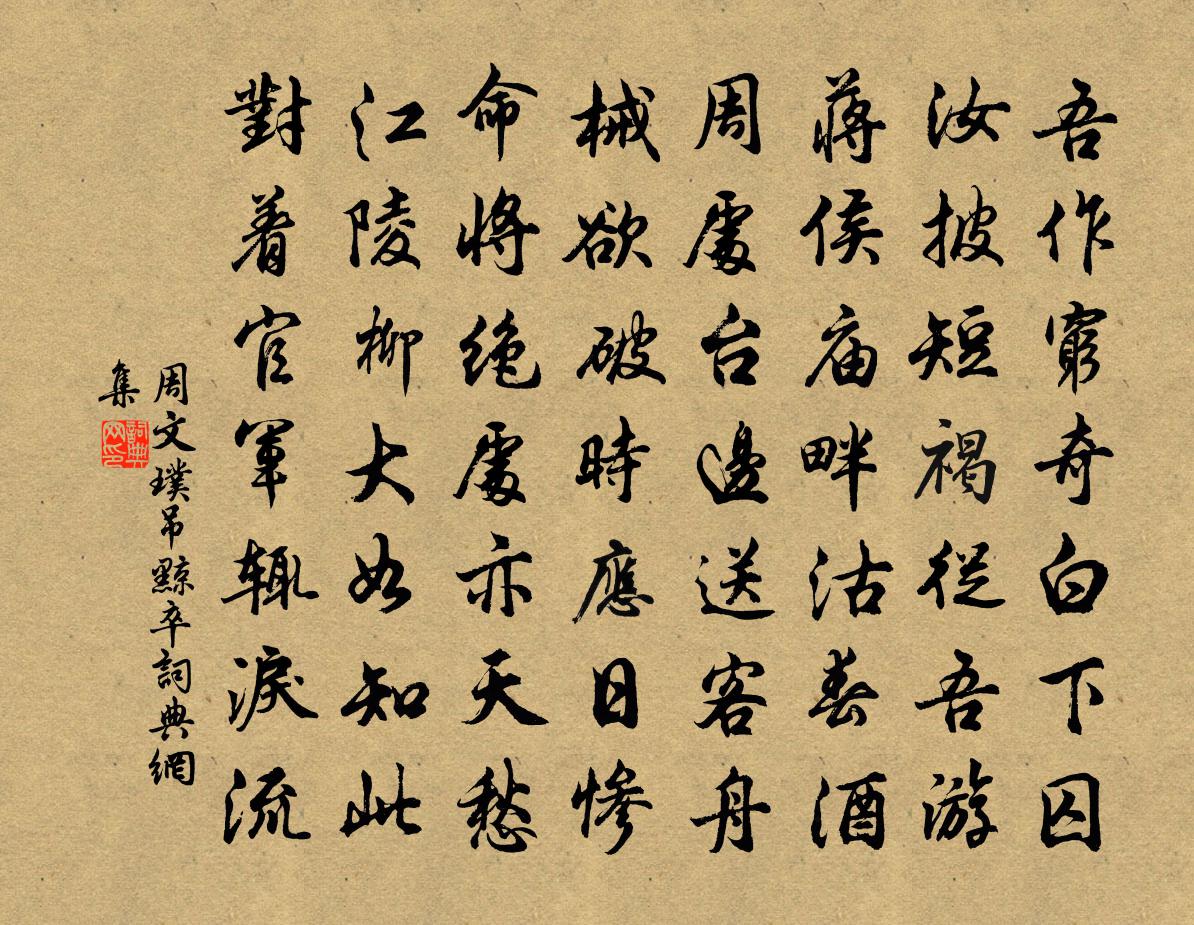 吾作窮奇白下囚
汝披短褐從吾游
蔣侯庙畔沽春酒
周處台邊送客舟
械欲破時應日慘
命將絶處亦天愁
江陵柳大如知此
對着官軍輒淚流
周文璞吊黥卒詞典網
集
詞典
网印